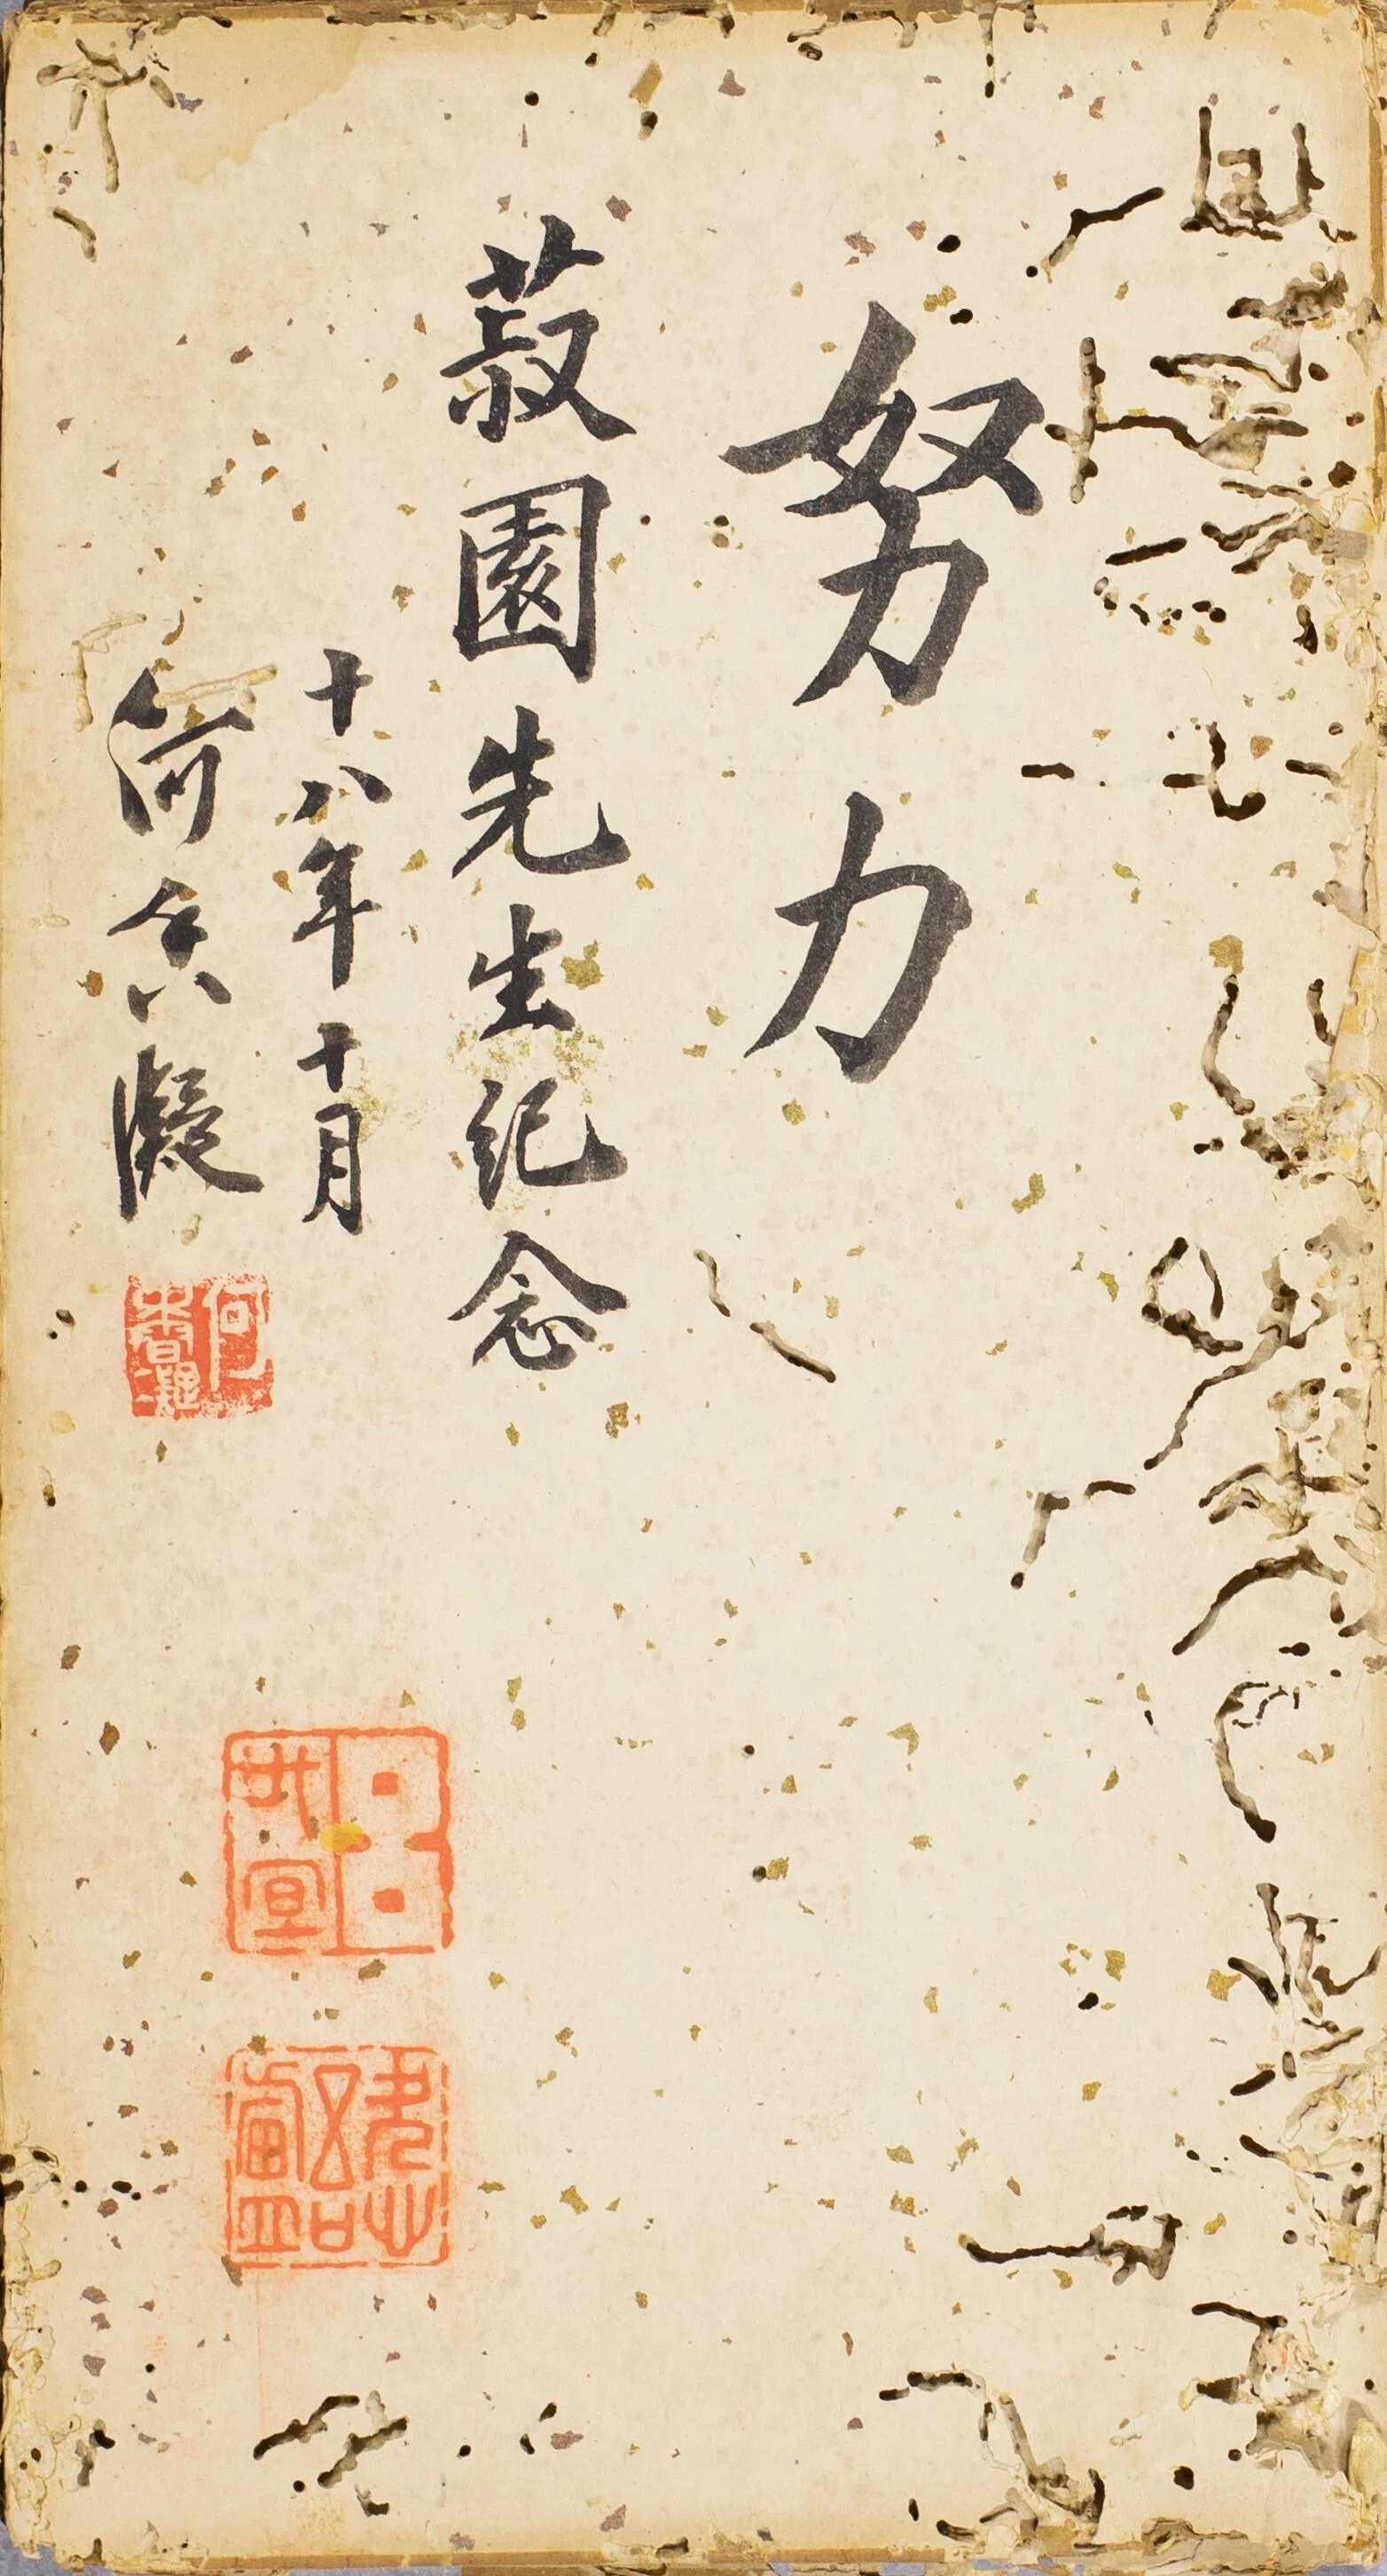 努力
菽園先生纪念
十八年十月
何香凝
何香凝